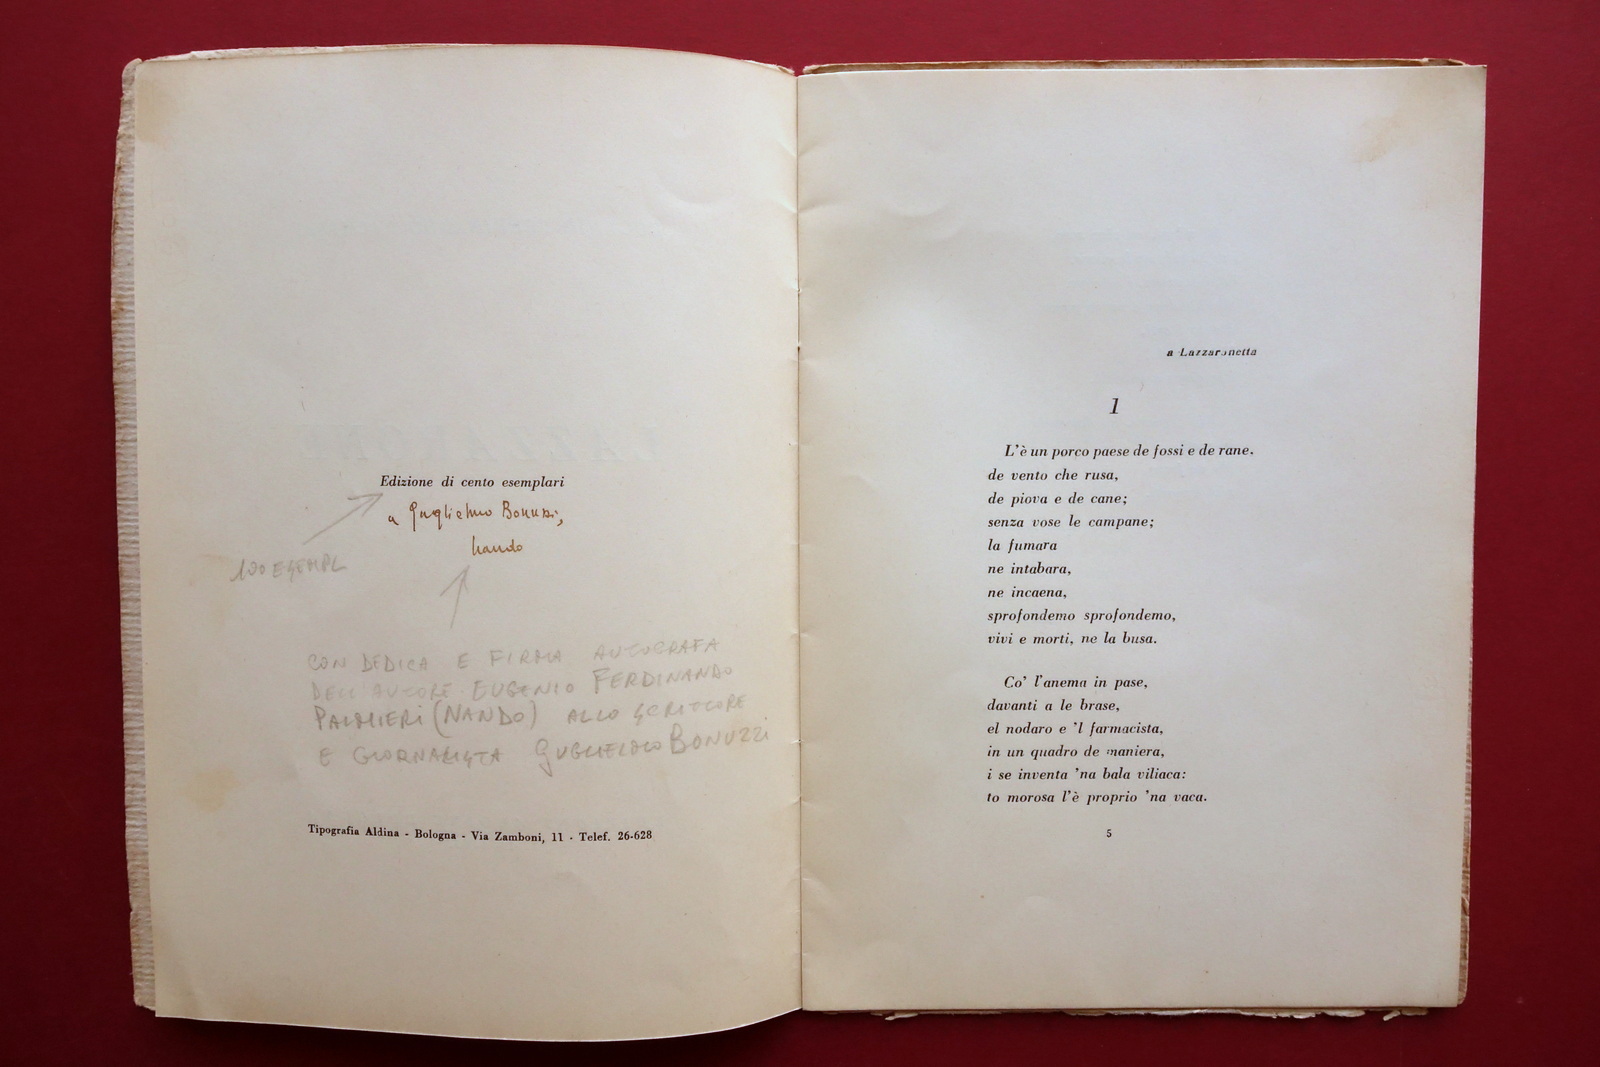 Edizione di cento esemplari
a Guglielmo Bonuzzi,
Nando
100 ESEMPL
CON DEDICA E FIRMA AUTOGRAFA
DELL'AUTORE EUGENIO FERDINANDO
PALMIERI (NANDO) ALLO SCRITTORE
E GIORNALISTA GUGLIELMO BONUZZI
Tipografia Aldina - Bologna - Via Zamboni, 11 - Telef. 26-628
a Lazzaronetta
1
L'è un porco paese de fossi e de rane.
de vento che rusa,
de piova e de cane;
senza vose le campane;
la fumara
ne intabara,
ne incaena,
sprofondemo sprofondemo,
vivi e morti, ne la busa.
Co' l'anema in pase,
davanti a le brase,
el nodaro e 'l farmacista,
in un quadro de maniera,
i se inventa 'na bala viliaca:
to morosa l'è proprio 'na vaca.
5